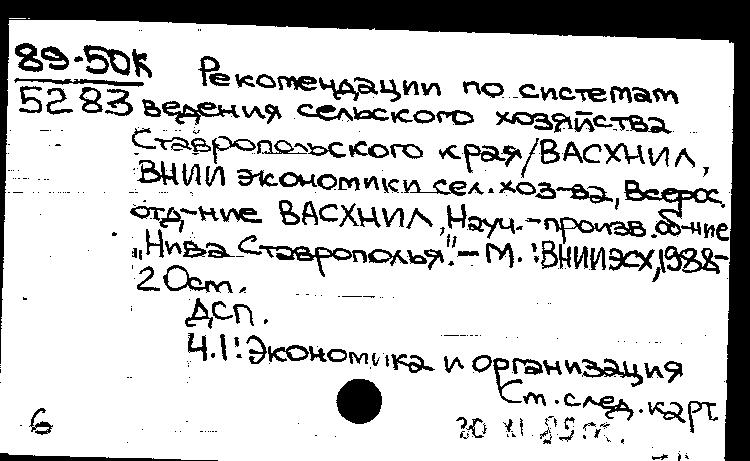 89-50К
5283
Рекомендации по системам
ведения сельского хозяйства
Ставропольского края/ВАСХНИЛ,
ВНИИ экономики сел. хоз-ва, Всерос.
отд-ние ВАСХНИЛ, Науч.-произв. об-ние
"Нива Ставрополья". - М. : ВНИИЭСХ, 1988-
20см.
ДСП.
Ч.1: Экономика и организация
См. след. карт.
30 XI 89
6